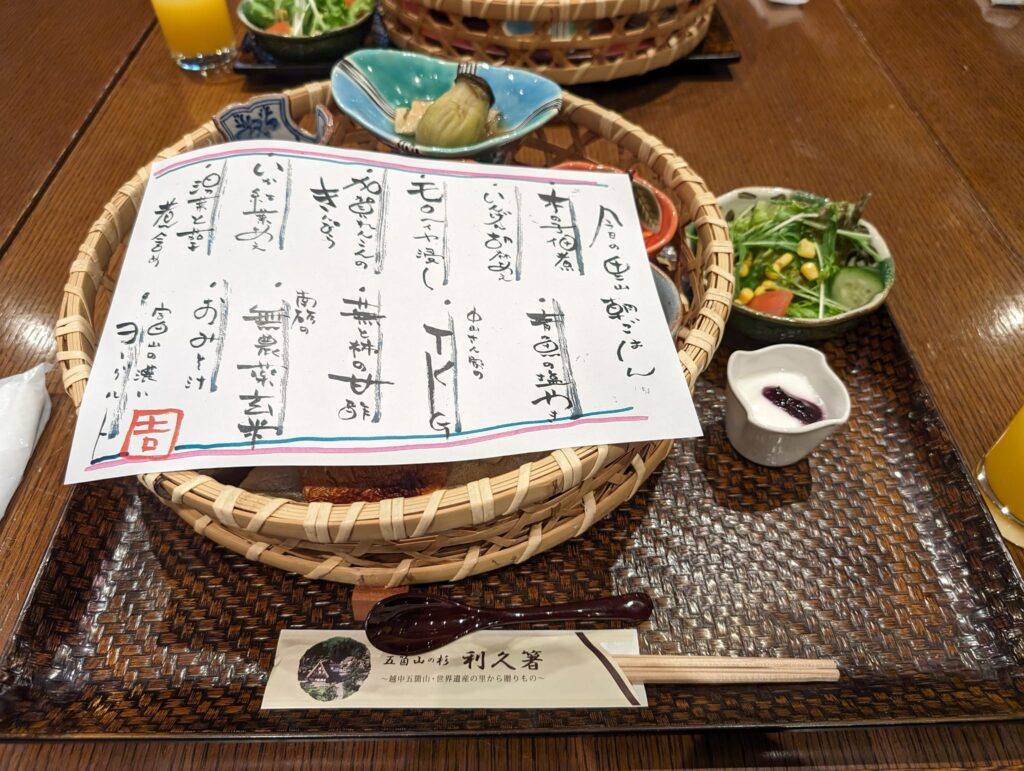 今日の里山朝ごはん
・木の芽佃煮
・いんげん
浸し
・加賀れんこんの
きんぴら
・いか紅葉あえ
・湯葉と茄子
煮含め
・赤魚の塩やき
・TKG
の甘酢
南砺の
・無農薬玄米
・おみそ汁
・富山の濃い
ヨーグルト
吉
五箇山の杉 利久箸
～越中五箇山・世界遺産の里から贈りもの～